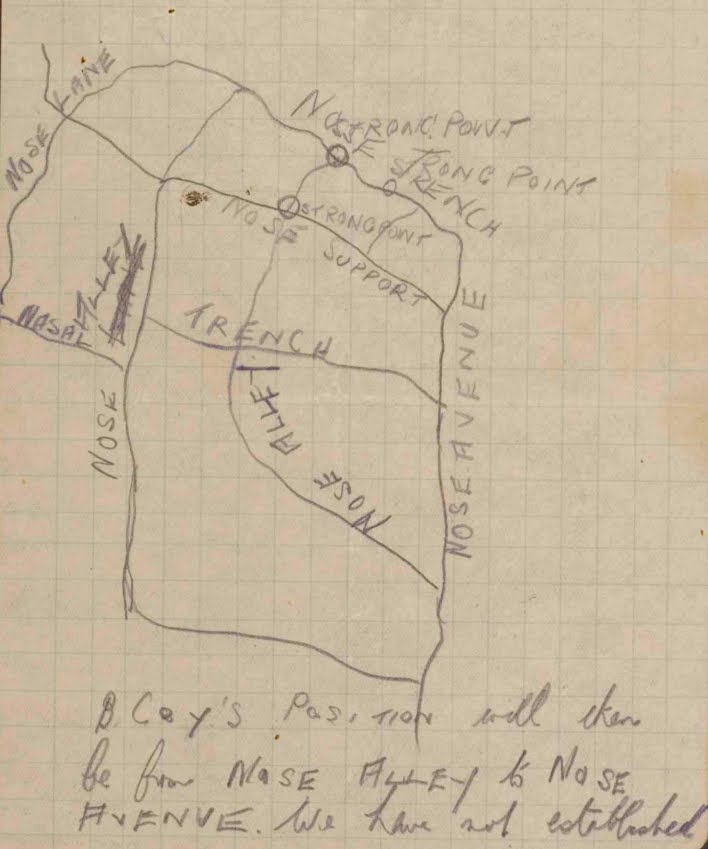 NOSE LANE
NOSE TRENCH
STRONG POINT
STRONG POINT
NOSE SUPPORT
STRONG POINT
NASAL
ALLEY
TRENCH
NOSE
NOSE ALLEY
NOSE AVENUE
B Coy's POSITION will then
be from NOSE ALLEY to NOSE
AVENUE. We have not established